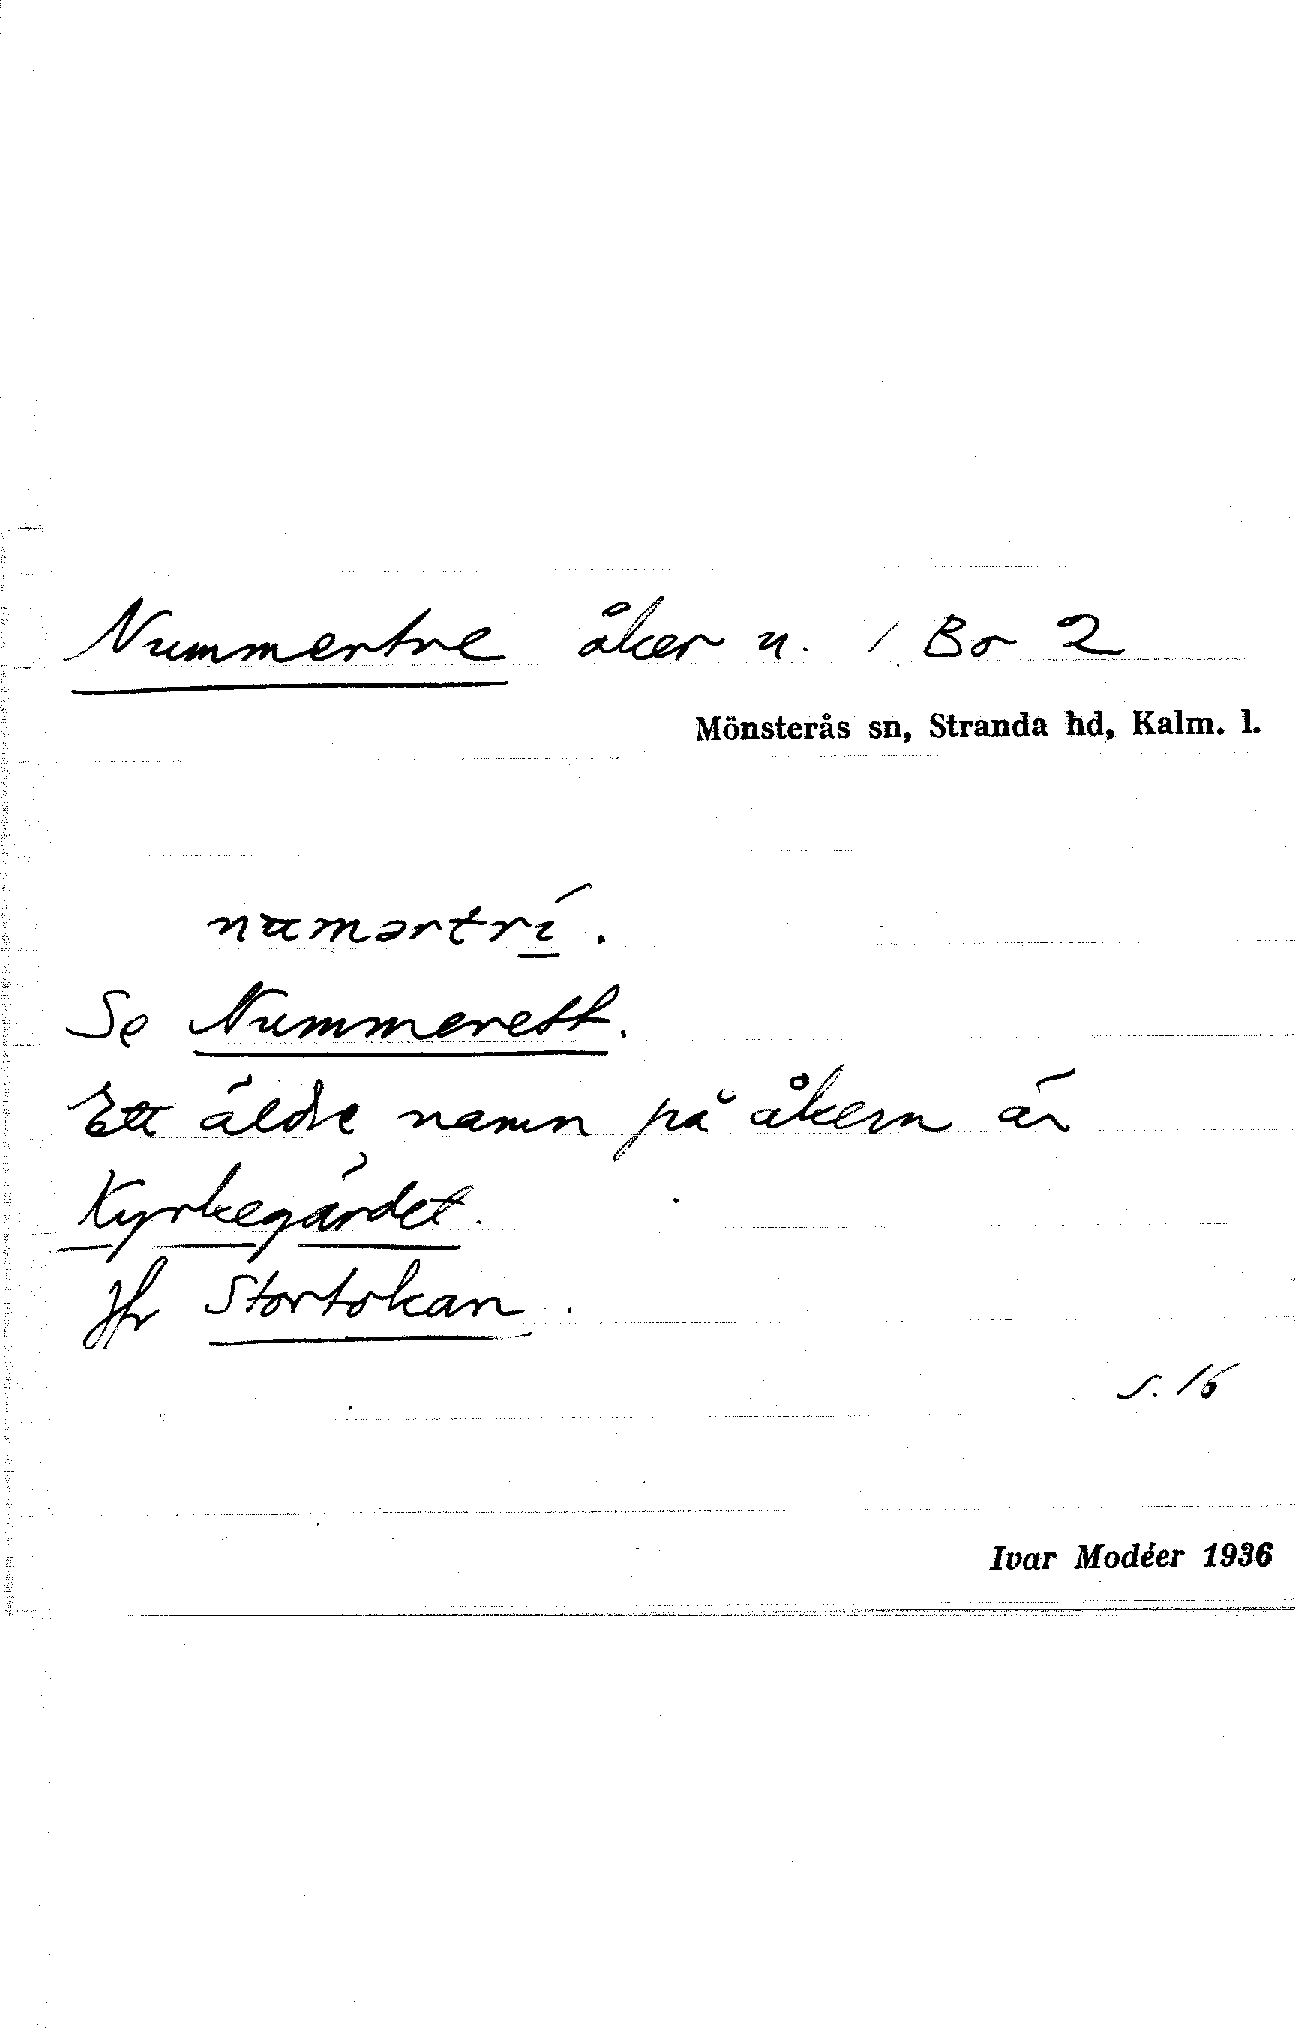 Nummertre åker n. 1 Bo 2
Mönsterås sn, Stranda hd, Kalm. l.
numərtri.
Se Nummerett.
Ett äldre namn på åkern är
Kyrkegärdet.
Jfr Stortokan.
s. 16
Ivar Modéer 1936